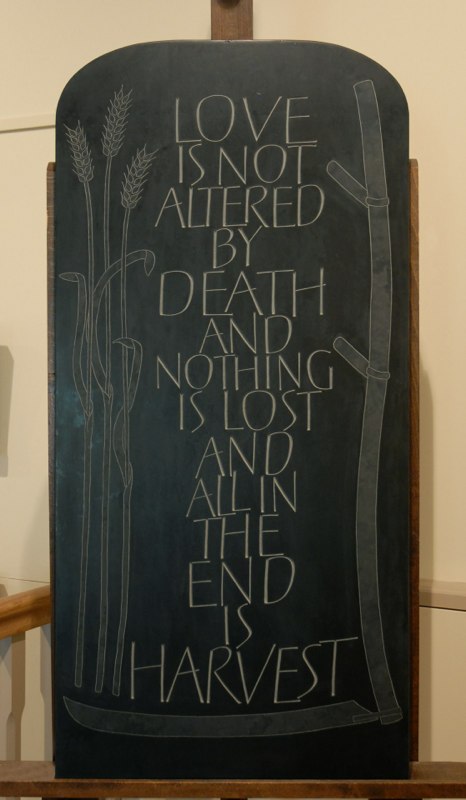 LOVE
IS NOT
ALTERED
BY
DEATH
AND
NOTHING
IS LOST
AND
ALL IN
THE
END
IS
HARVEST